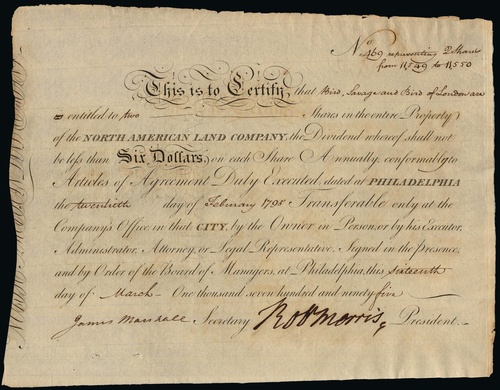 No 469 representing 2 Shares
from 11549 to 11550
This is to Certify, that Bird, Savage and Bird of London are
entitled to two Shares in the entire Property
of the NORTH AMERICAN LAND COMPANY, the Dividend whereof shall not
be less than Six Dollars, on each Share Annually, conformably to
Articles of Agreement Duly Executed, dated at PHILADELPHIA
the twentieth day of February 1795 Transferable only at the
Company's Office in that CITY, by the Owner in Person, or by his Executor,
Administrator, Attorney, or Legal Representative. Signed in the presence
and by Order of the Board of Managers, at Philadelphia, this sixteenth
day of March - One thousand seven hundred and ninety five
James Marshall Secretary Rob Morris, President.